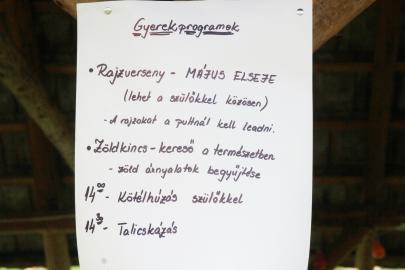 Gyerekprogramok
• Rajzverseny - MÁJUS ELSEJE
(lehet a szülőkkel közösen)
- A rajzokat a pultnál kell leadni.
• Zöldkincs - kereső a természetben
- zöld árnyalatok begyűjtése
14⁰⁰ - Kötélhúzás szülőkkel
14³⁰ - Talicskázás